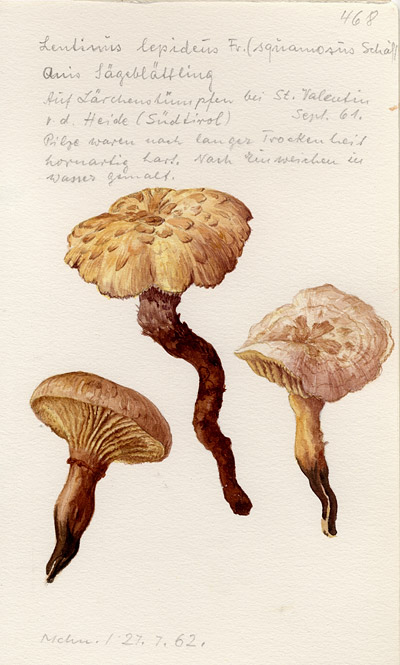 468
Lentinus lepideus Fr. (squamosus Schäf)
Anis Sägeblättling
Auf Lärchenstümpfen bei St. Valentin
v. d. Heide (Südtirol) Sept. 61.
Pilze waren nach langer Trockenheit
hornartig hart. Nach Einweichen in
wasser gemalt.
27. 7. 62.